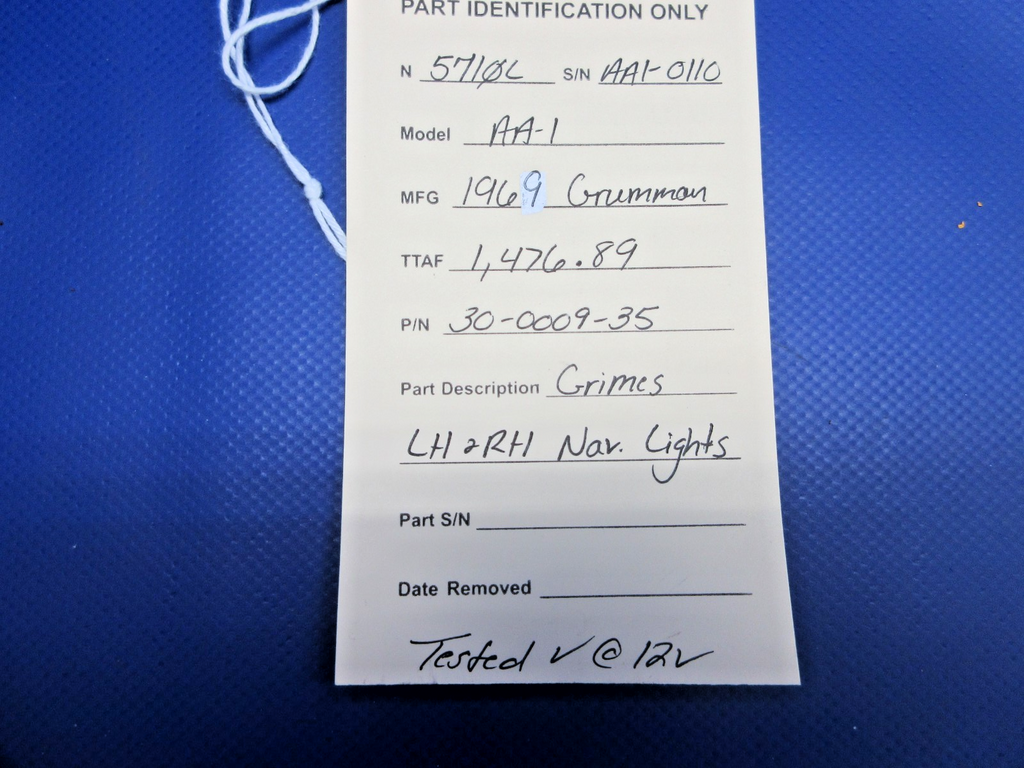 PART IDENTIFICATION ONLY
N 5710L S/N AA1-0110
Model AA-1
MFG 1969 Grumman
TTAF 1,476.89
P/N 30-0009-35
Part Description Grimes
LH & RH Nav. Lights
Part S/N
Date Removed
Tested ✓ @ 12v